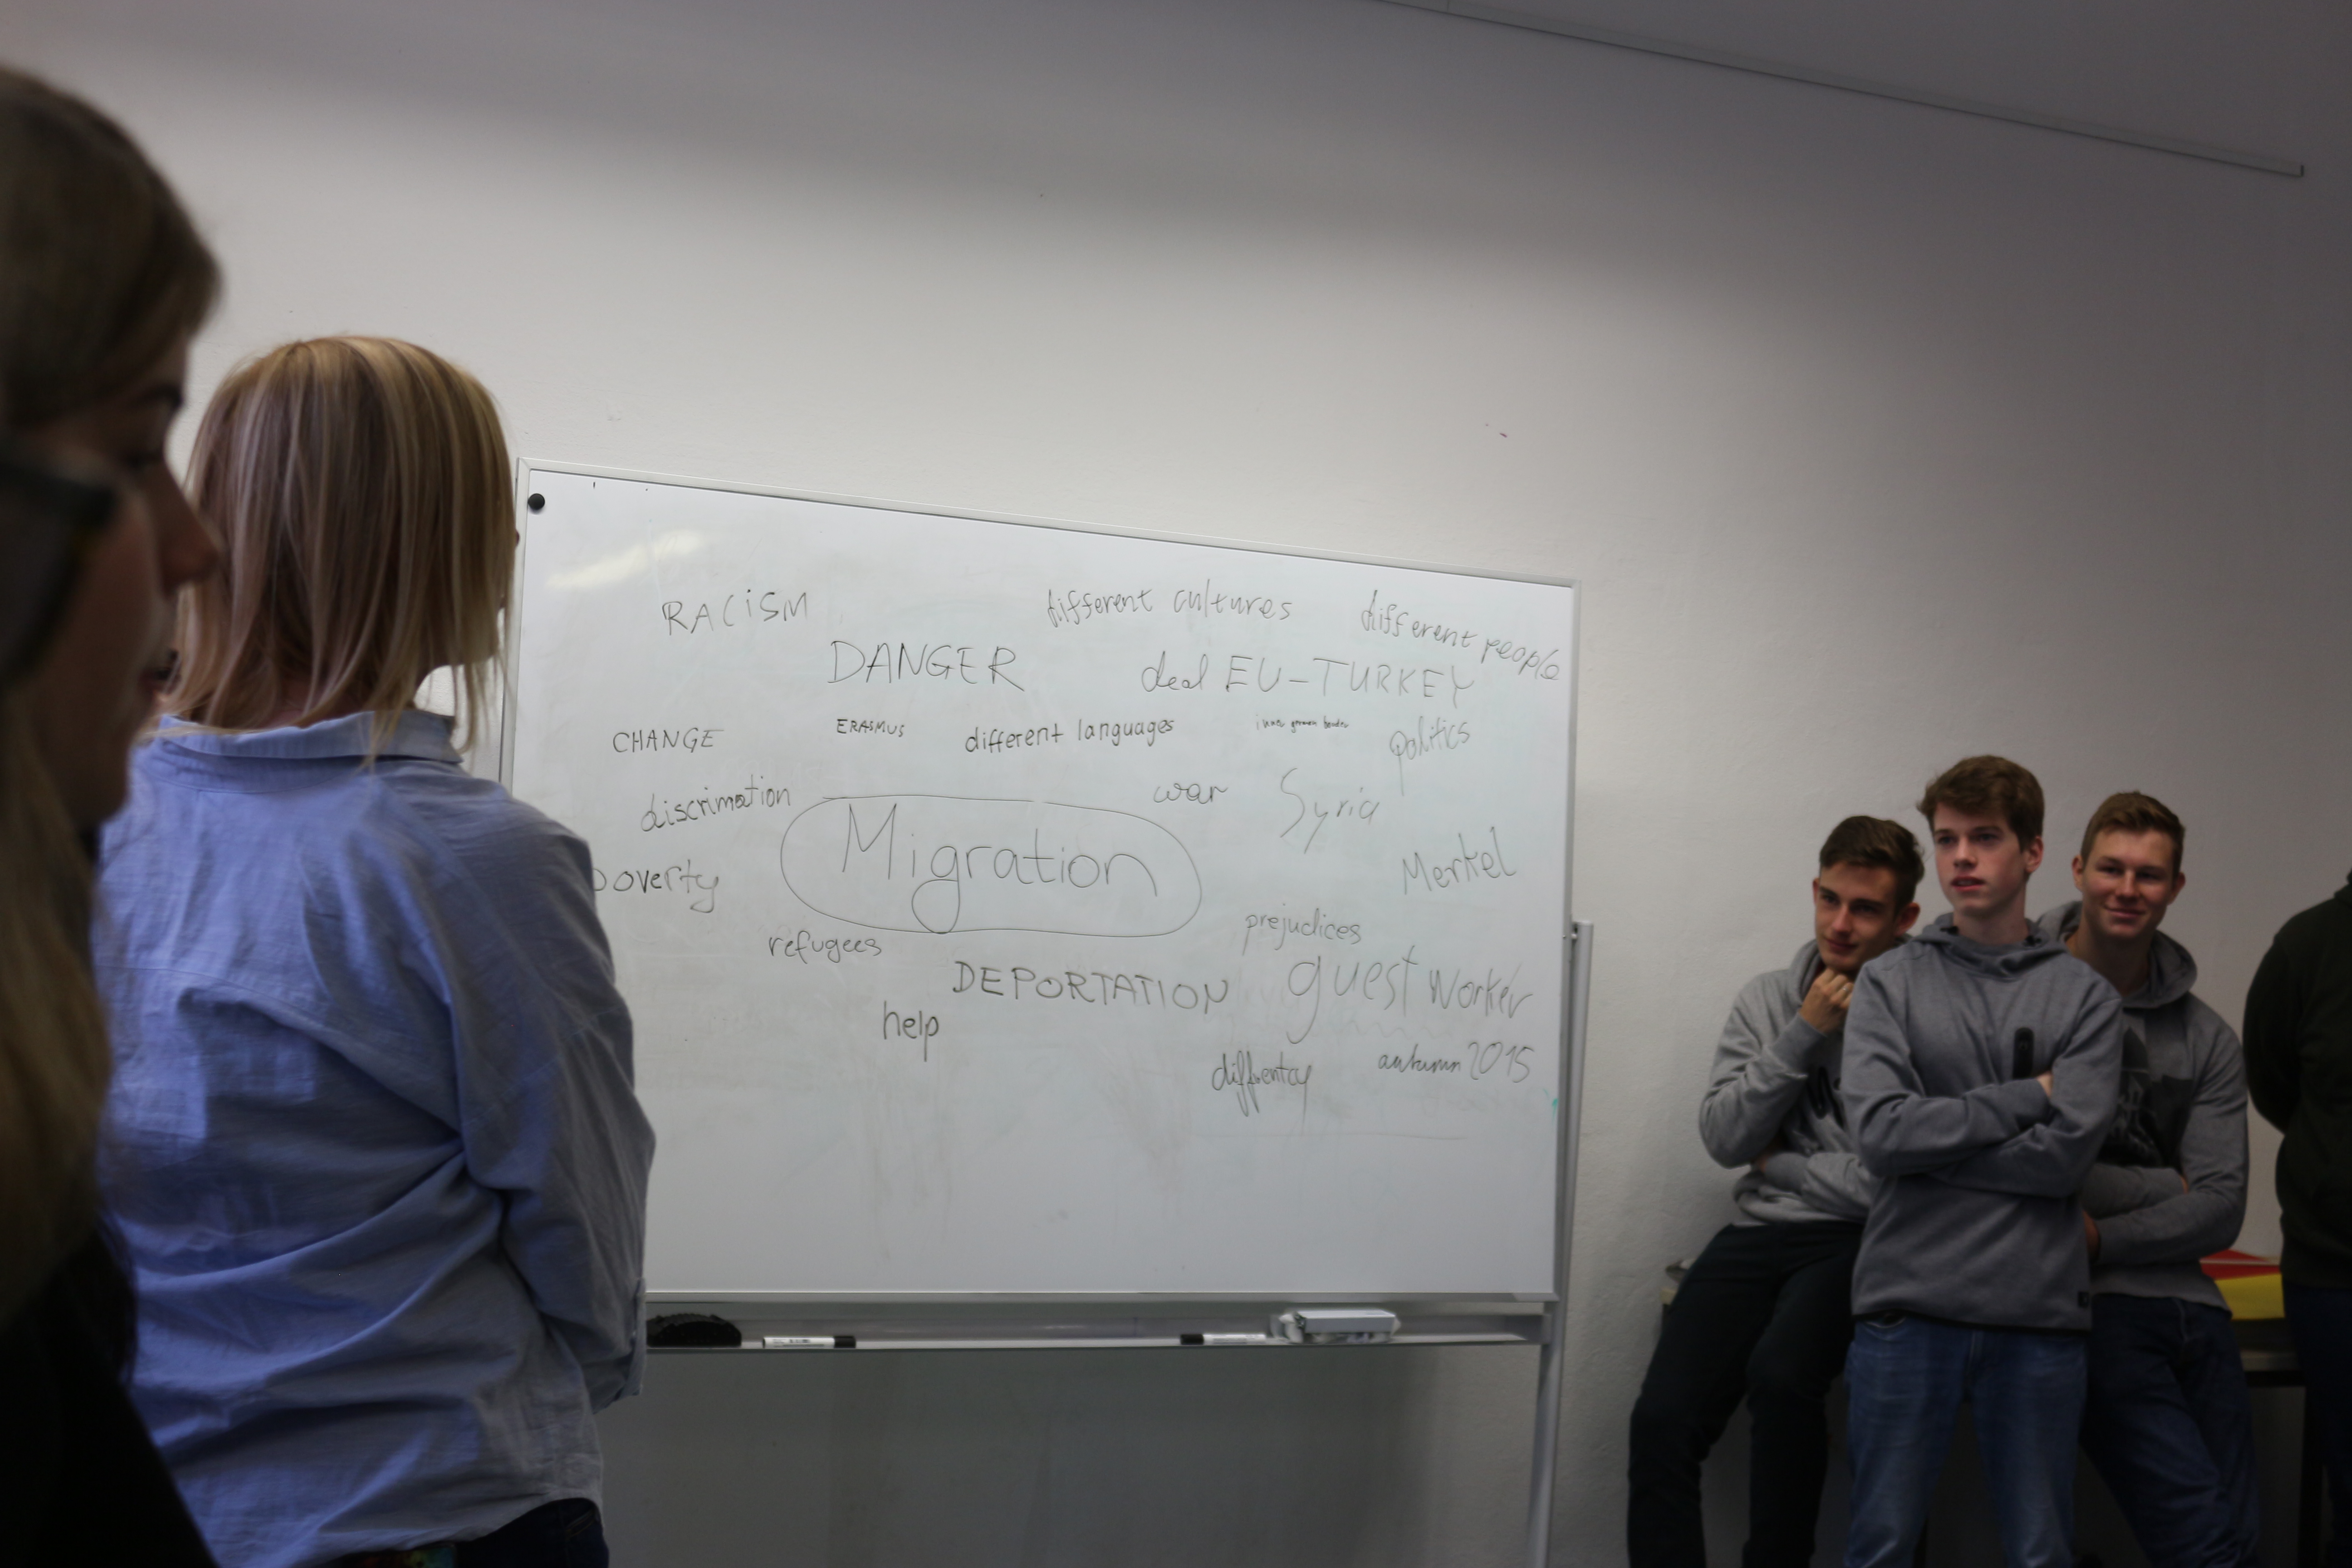 RACiSM
different cultures
different people
DANGER
deal EU-TURKEY
CHANGE
ERASMUS
different languages
inner german border
politics
discrimation
war
Syria
Migration
poverty
Merkel
refugees
prejudices
DEPORTATION
guest worker
help
autumn 2015